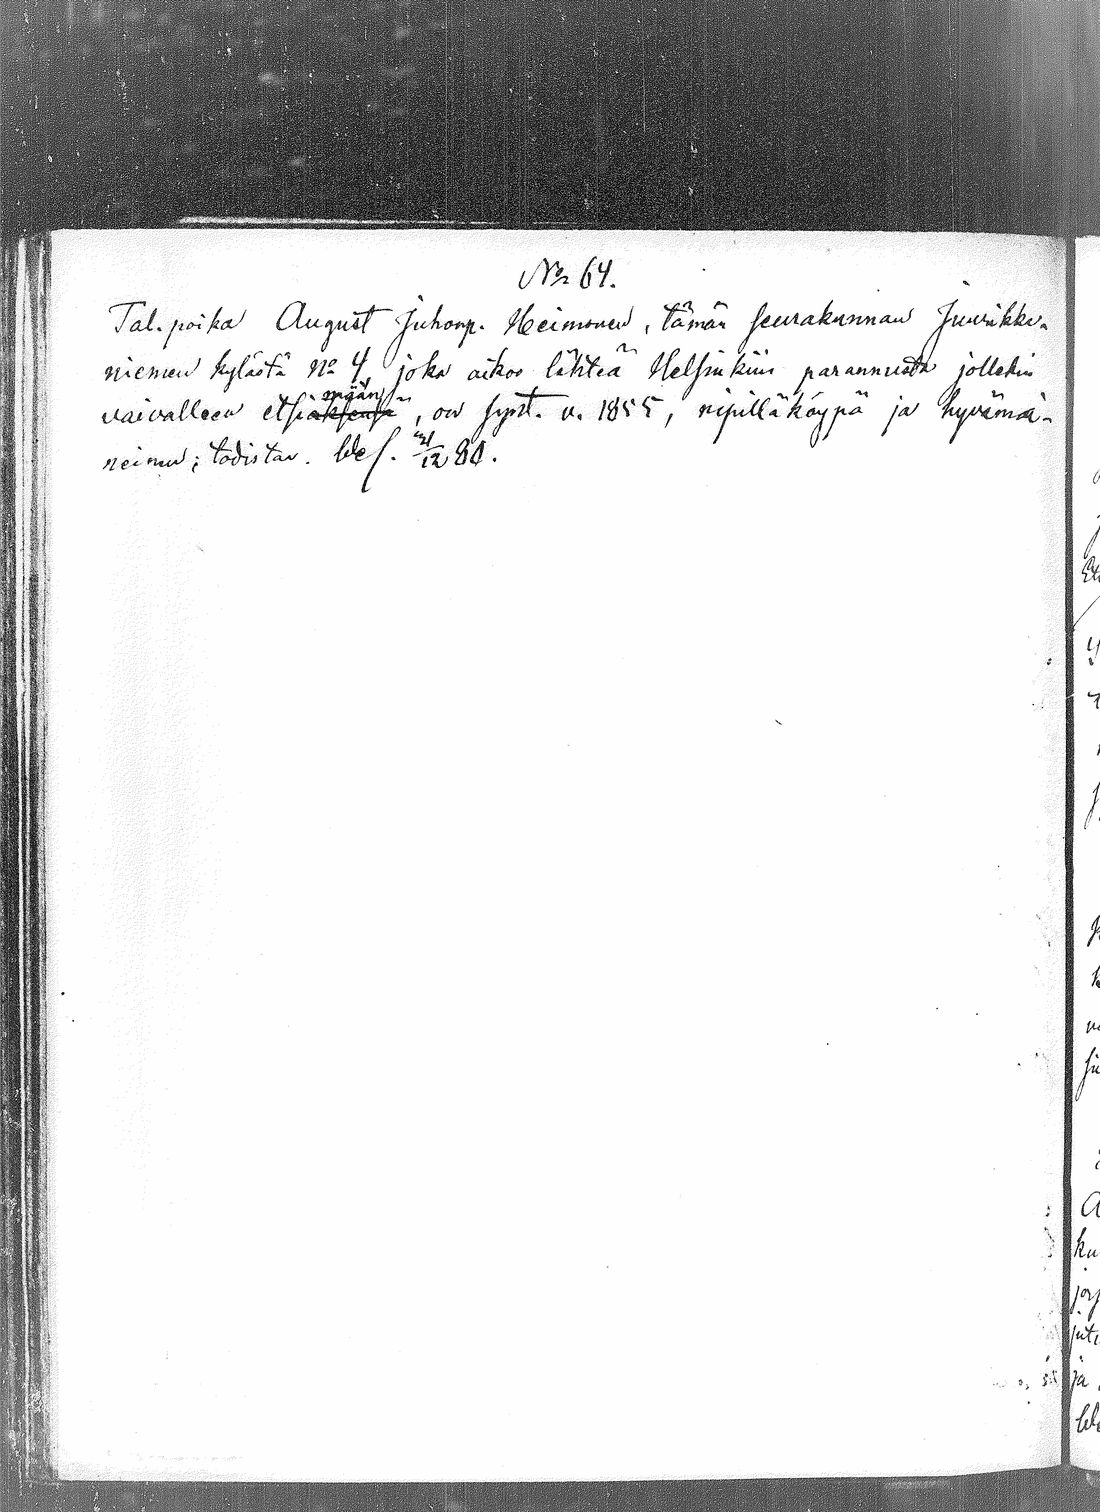 No 64.
Tal. poika August Juhonp. Heimonen, tämän seurakunnan Juurikka-
niemen kylästä No 4, joka aikoo lähteä Helsinkiin parannusta jollekin
vaivalleen etsimään, on synt. v. 1855, ripilläkäypä ja hyvämai-
neinen; todistan. 12 80.